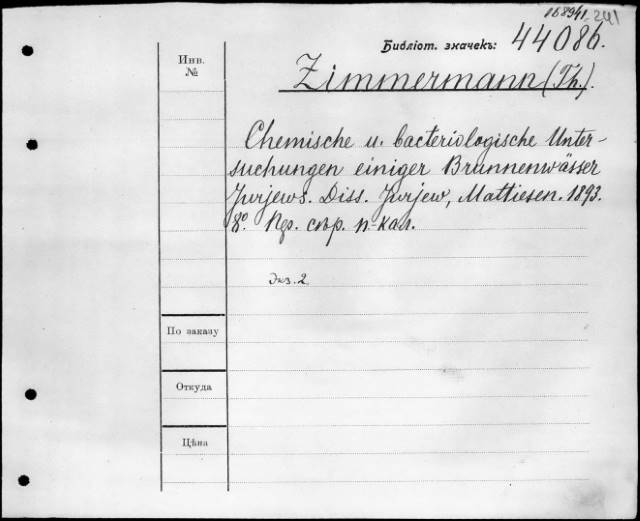 168941 - 241
Библіот. значекъ: 44086.
Инв.
№
Zimmermann (Th.).
Chemische u. bacteriologische Unter-
suchungen einiger Brunnenwässer
Jurjews. Diss. Jurjew, Mattiesen. 1893.
8°. Кр. сър. п-кал.
Экз. 2.
По заказу
Откуда
Цѣна